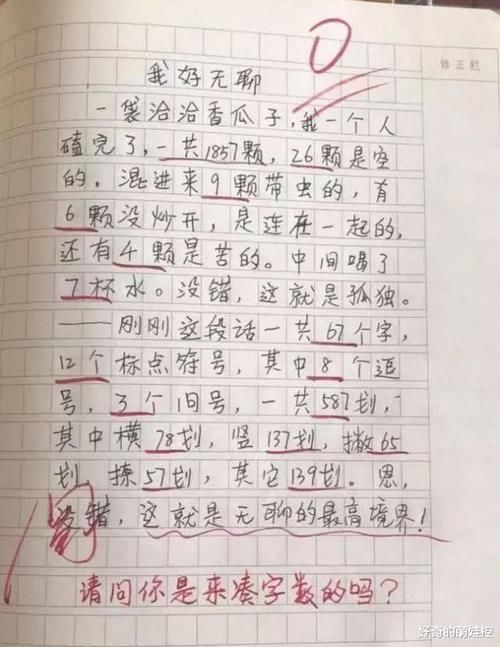 0
修正栏
我好无聊
一袋洽洽香瓜子，我一个人
磕完了，一共1857颗，26颗是空
的，混进来9颗带虫的，有
6颗没炒开，是连在一起的，
还有4颗是苦的。中间喝了
7杯水。没错，这就是孤独。
——刚刚这段话一共67个字，
12个标点符号，其中8个逗
号，3个旧号，一共587划，
其中横78划，竖137划，撇65
划，捺57划，其它139划。恩，
没错，这就是无聊的最高境界！
阅
请问你是来凑字数的吗？
好奇的萌娃控